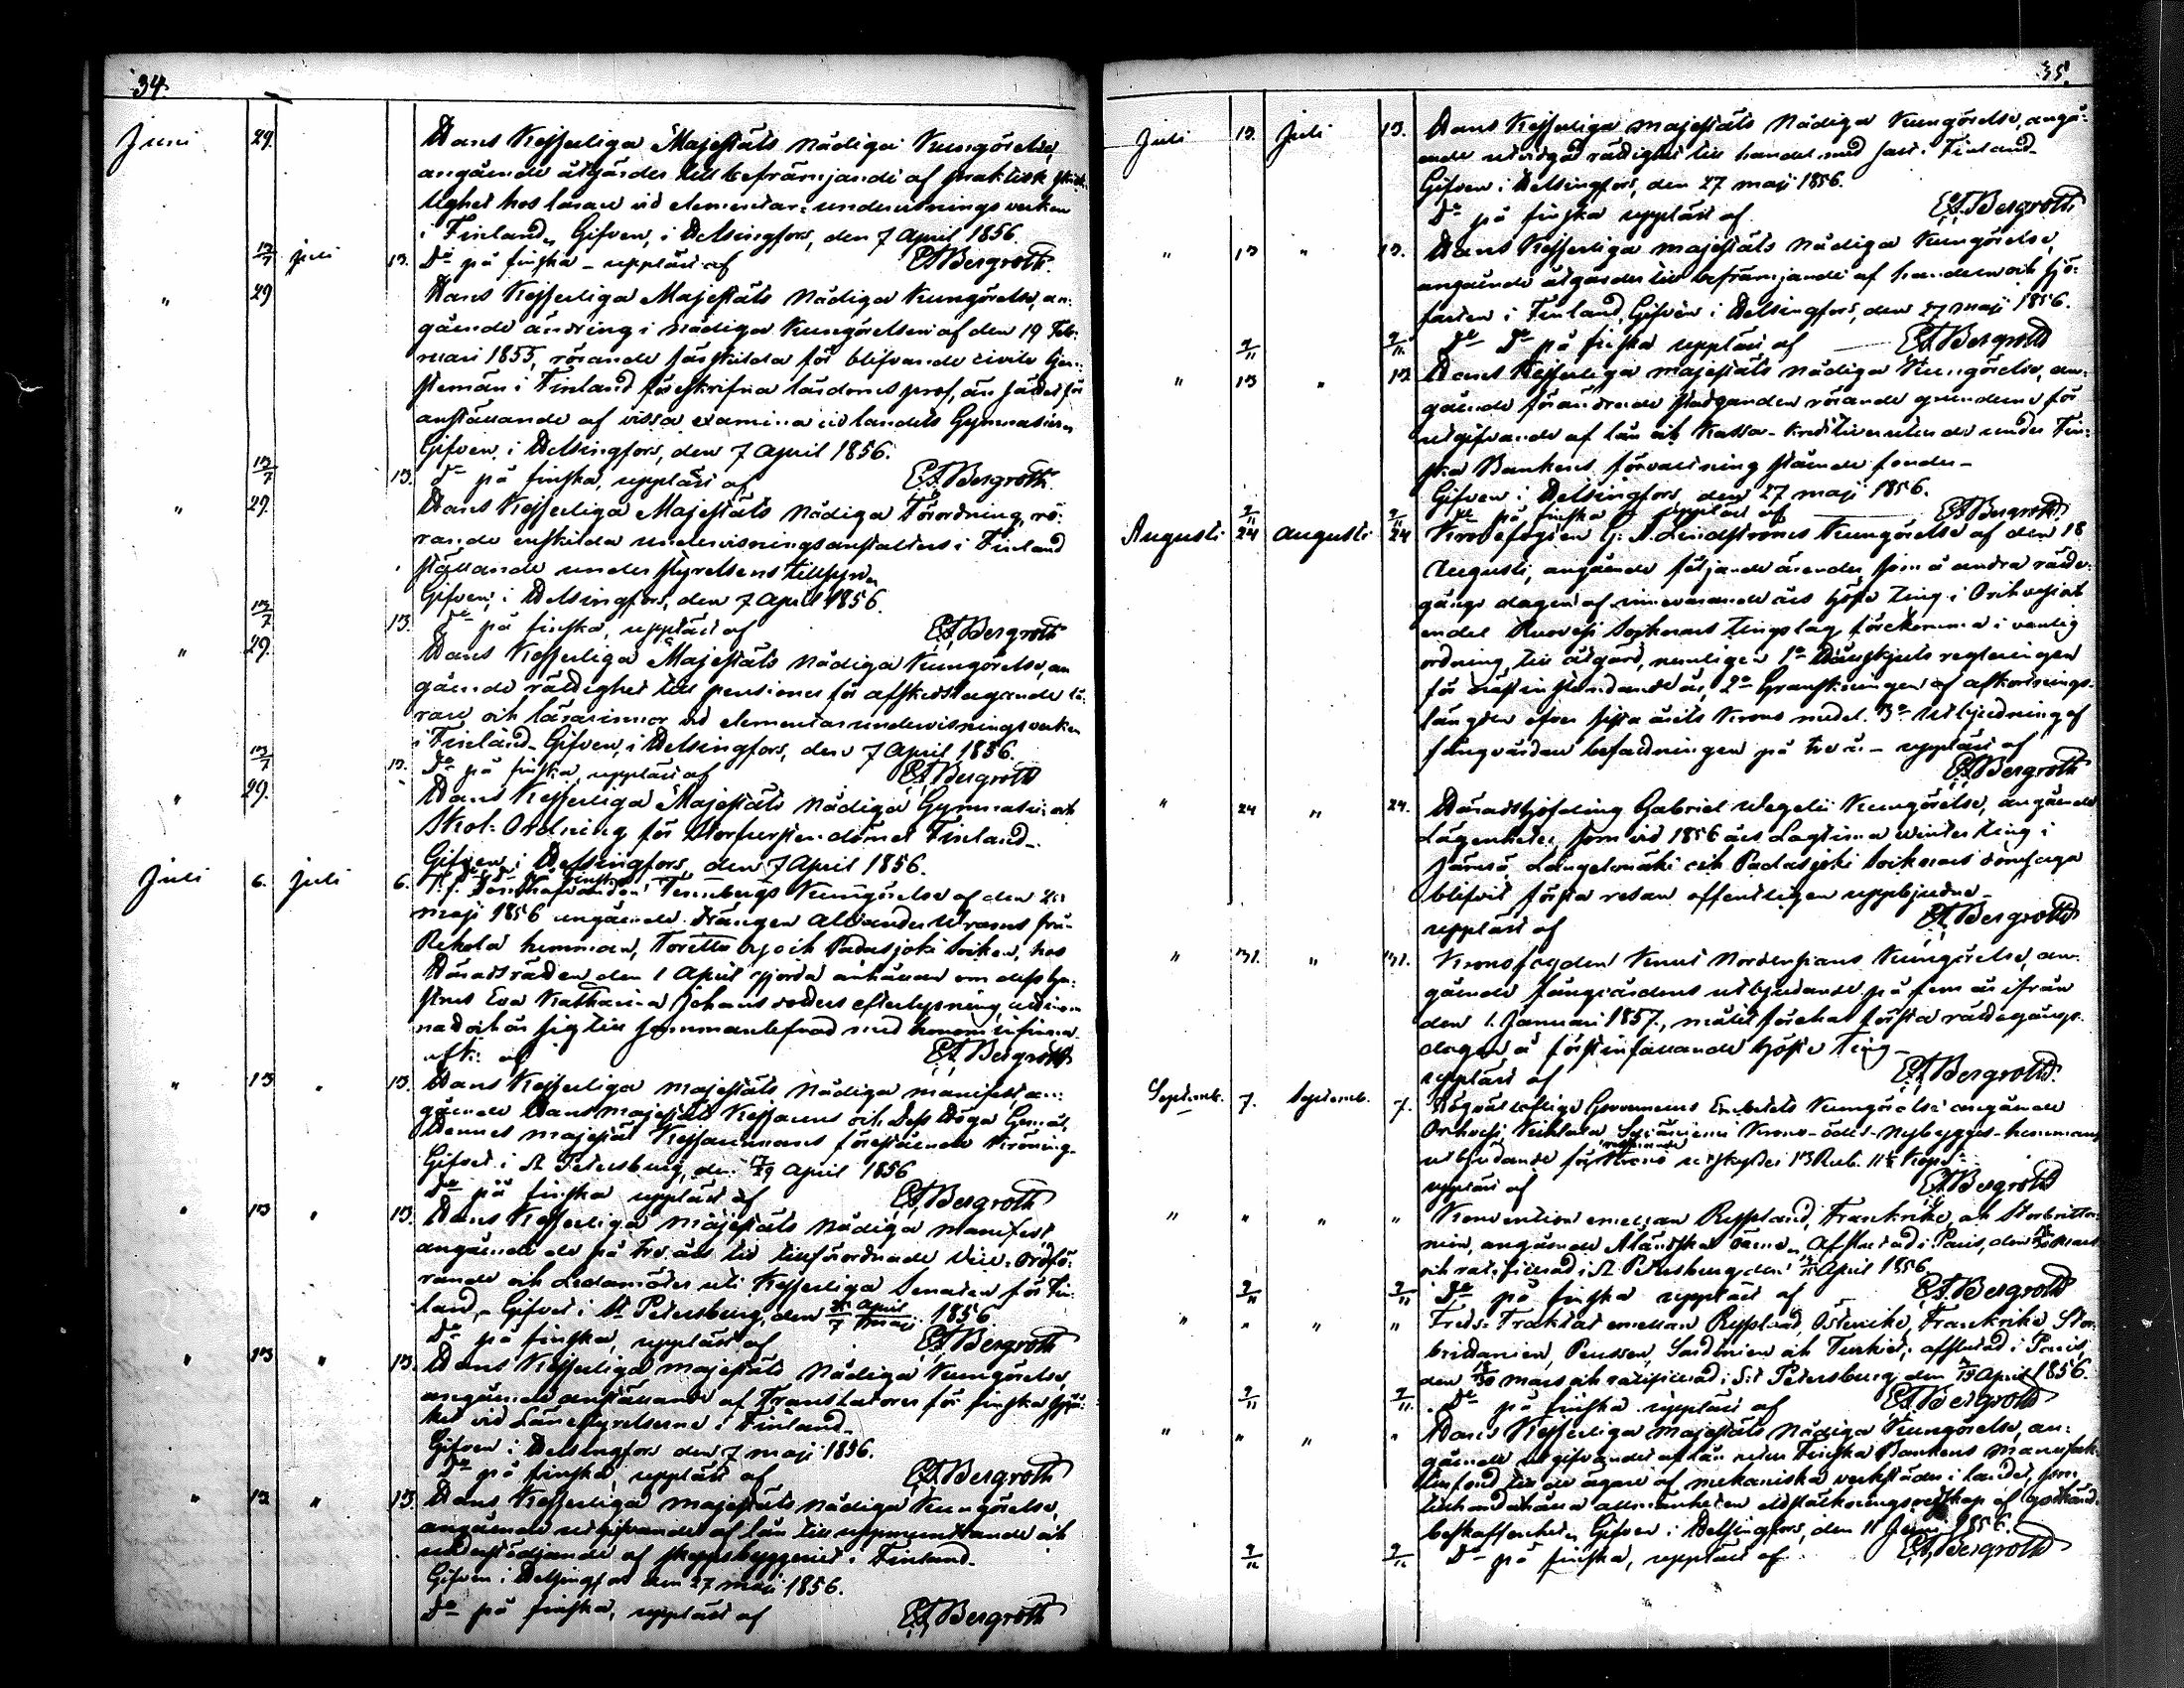 34.
Juni 29. Hans Kejserliga Majestäts Nådiga Kungörelse,
angående åtgärder till befrämjande af praktisk skick-
lighet hos lärare vid elementar-undervisnings verken
i Finland, Gifven, i Helsingfors, den 7 April 1856.
13/7 Juli 13. Do på finska - uppläst af EA Bergroth.
" 29 Hans Kejserliga Majestäts Nådiga Kungörelse, an-
gående ändring i Nådiga Kungörelsen af den 19 Feb-
ruari 1855, rörande särskilda för blifvande civile tjen-
stemän i Finland föreskrifna lärdoms prof, än sådet för
anställande af vissa examina vid landets Gymnasier,
Gifven, i Helsingfors, den 7 April 1856.
13/7 13. Do på finska, uppläst af EA Bergroth.
" 29. Hans Kejserliga Majestäts Nådiga Förordning, rö-
rande enskilda undervisningsanstalters i Finland
ställande under styrelsens tillsyn,
Gifven, i Helsingfors, den 7 April 1856.
13/7 13. Do på finska, uppläst af EA Bergroth
" 29. Hans Kejserliga Majestäts Nådiga Kungörelse, an
gående rättighet till pensioner för afskedstagande lä-
rare och lärarinnor vid elementarundervisningsverken
i Finland. Gifven, i Helsingfors, den 7 April 1856.
13/7 13. Do på finska, uppläst af EA Bergroth
" 29. Hans Kejserliga Majestäts Nådiga Gymnasii- och
Skol-Ordning för Storfurstendömet Finland.
Gifven, i Helsingfors, den 7 April 1856.
Juli 6. Juli 6. T. f. Länshöfdingen Ternbergs Kungörelse af den
Maji 1856 angående drängen från
Rekola hemman, Torittu by och Padasjoki Socken, hos
Häradsrätten den 1 April gjorda anhållan om dess hu-
strus Eva Katharina Johans dotters efterlysning,
nad och år sig till sammanlefnad med honom infinna.
af EA Bergroth
" 13 " 13. Hans Kejserliga Majestäts Nådiga Manifest an-
gående Hans Majestät Kejsarens och Dess Höga Gemål,
Hennes Majestät Kejsarinnans förestående Kröning.
Gifvet i St Petersburg, den 17/29 April 1856
Do på finska uppläst af EA Bergroth
" 13 " 13. Hans Kejserliga Majestäts Nådiga Manifest,
angående de på tre års tid tillförordnade Vice-Ordfö-
rande och Ledamöter uti Kejserliga Senaten för Fin-
land, Gifvet i St Petersburg, den April/7 Maji 1856.
Do på finska, uppläst af EA Bergroth
" 13 " 13. Hans Kejserliga Majestäts Nådiga Kungörelse,
angående anställande af Translatorer för finska språ-
ket vid Länestyrelserne i Finland.
Gifven i Helsingfors den 7 Maji 1856.
Do på finska, uppläst af EA Bergroth
" 13 " 13. Hans Kejserliga Majestäts Nådiga Kungörelse,
angående utgifvande af lån till uppmuntrande och
understödjande af skeppsbyggeriet i Finland.
Gifven i Helsingfors den 27 Maji 1856.
Do på finska, uppläst af EA Bergroth
35.
Juli 13. Juli 13. Hans Kejserliga Majestäts Nådiga Kungörelse, angå-
ende utvidgad rättighet till handel med salt i Finland.
Gifven i Helsingfors, den 27 Maji 1856.
Do på finska uppläst af EA Bergroth
" 13 " 13. Hans Kejserliga Majestäts Nådiga Kungörelse,
angående åtgärder till befrämjande af handeln och sjö-
farten i Finland, Gifven i Helsingfors, den 27 Maji 1856.
9/11 9/11 Do Do på finska uppläst af EA Bergroth
" 13 " 13 Hans Kejserliga Majestäts Nådiga Kungörelse, an-
gående förändrade stadganden rörande grunderne för
utgifvande af lån och Kassa-kreditiver under Fin-
ska Bankens förvaltning stående fonder.
Gifven i Helsingfors den 27 Maji 1856.
9/11 9/11 Do på finska uppläst af EA Bergroth
Augusti 24 Augusti 24 Kronofogden G. A. Lindströms Kungörelse af den 18
Augusti, angående följande ärender som å andra rätte-
gångs dagen af innevarande års höste Ting i Orihvesi och
endel Ruovesi Socknars Tingslag förekomma i vanlig
ordning till åtgärd, nemligen 1o Hållskjuts regleringen
för nästinstundande år, 2o Granskningen af afkortnings-
längden öfver sista årets Krono medel. 3o Utbjudning af
fångvården befattningen på tre år - uppläst af
EA Bergroth
" 24 " 24. Häradshöfding Gabriel Wegelii Kungörelse, angående
Lägenheter, som vid 1856 års Lagtima Winterting i
Jämsä Längelmäki och Padasjoki Socknars domsaga
blifvit första resan offentligen uppbjudne.
uppläst af EA Bergroth
" 31. " 31. Kronofogden Knut Nordensvans Kungörelse, an-
gående fångvårdens utbjudande på fem år ifrån
den 1. Januari 1857, målet förehas första rättegångs-
dagen å förstinfallande höste Ting.
uppläst af EA Bergroth
Septemb. 7. Septemb. 7. Högvälloflige Gouverneurs Embetets Kungörelse angående
Orihvesi Krono-ödes-nybygges-hemmans
utbjudande för resterande Krono utskylder 13 Rub. 11½ Kop.
uppläst af EA Bergroth
" " " " Konvention emellan Ryssland, Frankrike, och Storbritan-
nien, angående Åländska öarne, Afslutad i Paris, den 18/30 Mars
och ratificerad i St Petersburg, den 3/15 April 1856
9/11 9/11 Do på finska uppläst af EA Bergroth
" " " " Freds-Traktat emellan Ryssland, Österrike, Frankrike Stor-
britannien, Preussen, Sardinien och Turkiet; afslutad i Paris,
den 18/30 Mars och ratificerad i S:t Petersburg den 3/15 April 1856.
9/11 9/11 Do på finska uppläst af EA Bergroth
" " " " Hans Kejserliga Majestäts Nådiga Kungörelse, an-
gående utgifvandet af lån utur Finska Bankens Manufak-
turfond till de ägare af mekaniska verkstäder i landet, som
tillhandahålla allmänheten eldsläckningsredskap af godkänd
beskaffenhet, Gifven i Helsingfors, den 11 Juni 1856.
9/11 9/11 Do på finska, uppläst af EA Bergroth